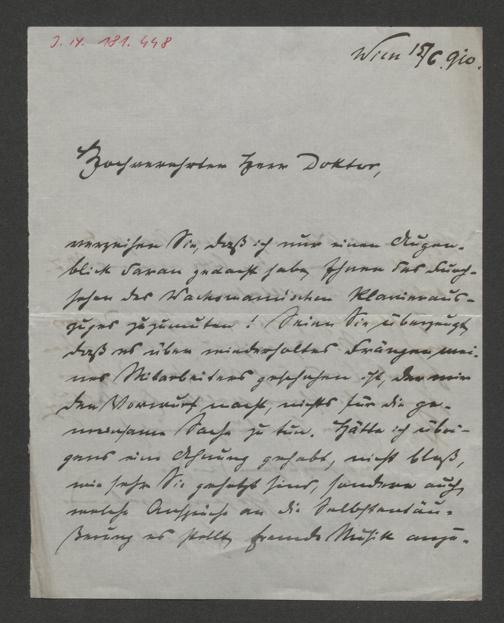 J. N. 181.448
Wien 15/6. 910.
Hochverehrter Herr Doktor,
verzeihen Sie, daß ich nur einen Augen-
blick daran gedacht habe, Ihnen das Durch-
sehen des Klavieraus-
zuges zuzumuten! Seien Sie überzeugt,
daß es über wiederholtes Drängen mei-
nes Mitarbeiters geschehen ist, der mir
den Vorwurf macht, nichts für die ge-
meinsame Sache zu tun. Hätte ich übri-
gens eine Ahnung gehabt, nicht bloß,
wie sehr Sie gehetzt sind, sondern auch,
welche Ansprüche an die Selbstentäu-
ßerung es stellt, fremde Musik anzu-